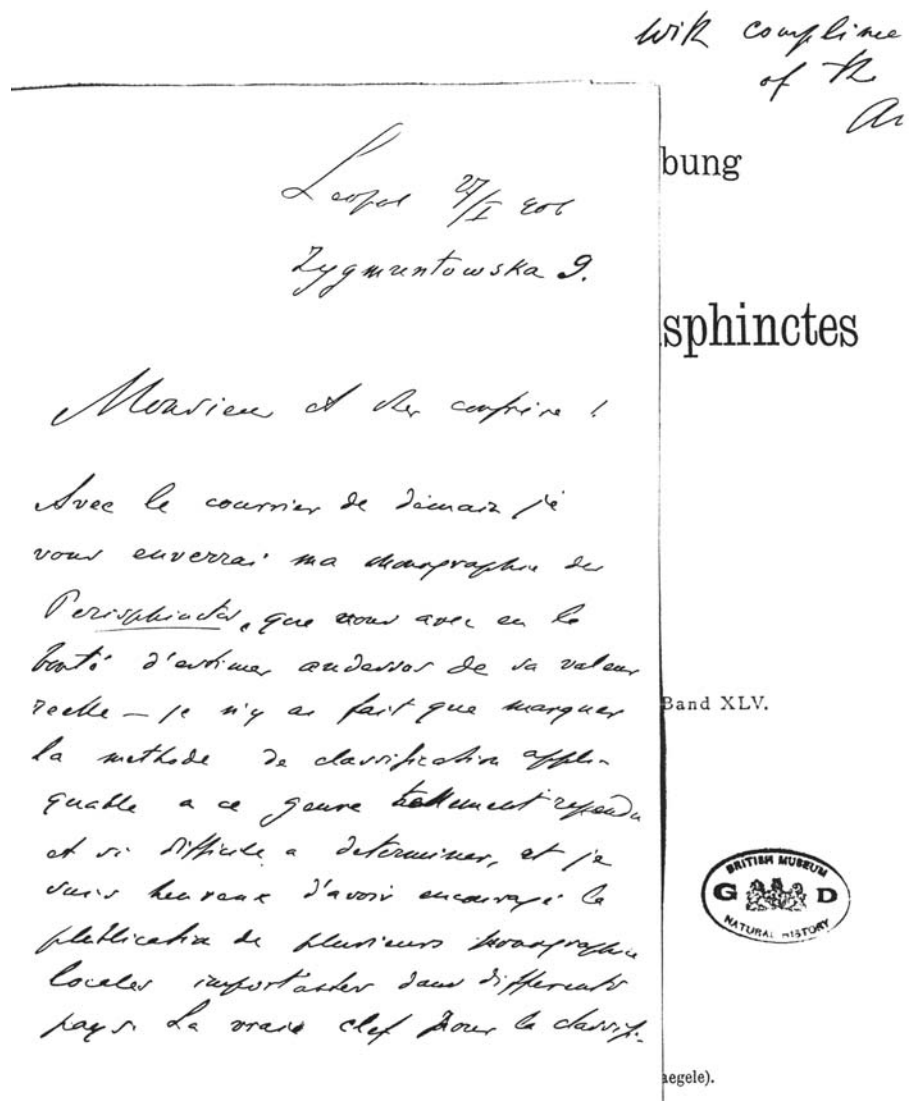 with complime
of the
Au
bung
Leopol 27/I 906
Zygmuntowska 9.
sphinctes
Monsieur et cher confrère !
Avec le courrier de demain je
vous enverrai ma monographie des
Perisphinctes, que vous avez eu la
bonté d'estimer audessus de sa valeur
reelle — je n'y ai fait que marquer
Band XLV.
la methode de classification appli-
quable a ce genre tellement repandu
et si difficile a determiner, et je
suis heureux d'avoir encouragé la
publication de plusieurs monographies
locales importantes dans differents
pays. La vraie clef pour la classif.-
BRITISH MUSEUM
G D
NATURAL HISTORY
aegele).